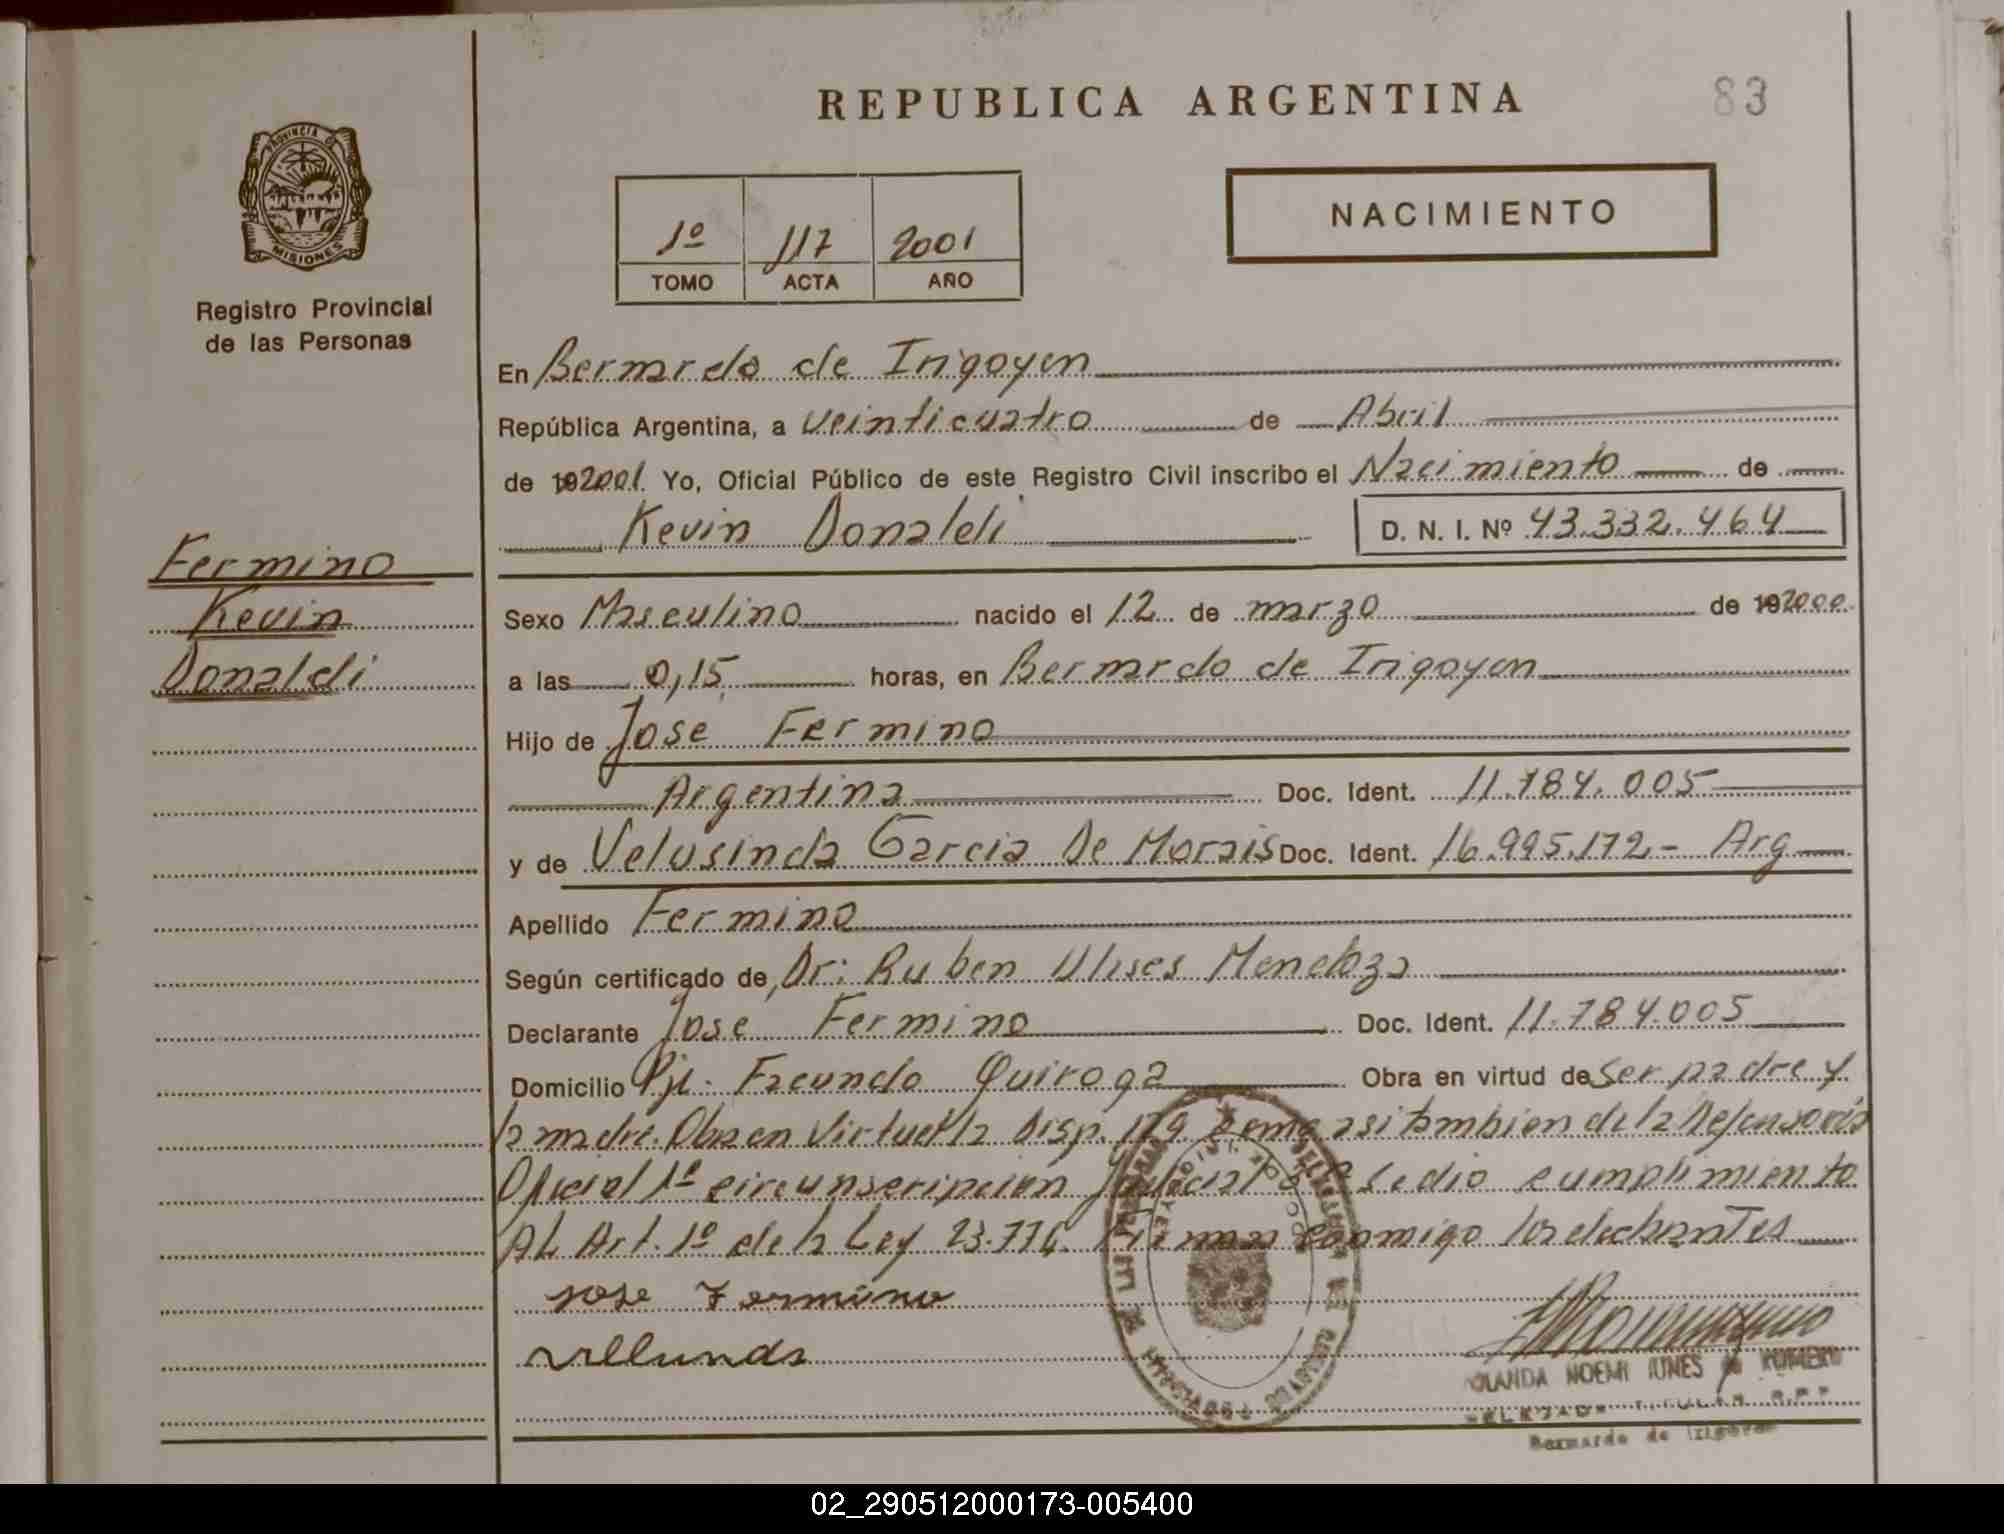 REPUBLICA ARGENTINA
83
PROVINCIA DE
MISIONES
Registro Provincial
de las Personas
1º 117 2001
TOMO ACTA AÑO
NACIMIENTO
En Bernardo de Irigoyen
República Argentina, a veinticuatro de Abril
de 192001. Yo, Oficial Público de este Registro Civil inscribo el Nacimiento de
Kevin Donaldi D. N. I. Nº 43.332.464
Fermino
Kevin
Donaldi
Sexo Masculino nacido el 12 de marzo de 192000
a las 0,15 horas, en Bernardo de Irigoyen
Hijo de Jose Fermino
Argentina Doc. Ident. 11.784.005
y de Velusinda Garcia De Morais Doc. Ident. 16.995.172.- Arg
Apellido Fermino
Según certificado de Dr: Ruben Ulises Mendoza
Declarante Jose Fermino Doc. Ident. 11.784.005
Domicilio Pje. Facundo Quiroga Obra en virtud de ser padre y
la madre. Obra en Virtud la Disp. 179 como asi tambien de la Defensoria
Oficial 1º circunscripcion Judicial se dio cumplimiento
AL Art. 1º de la Ley 23.776. Firman conmigo los declarantes
Jose Fermino
YOLANDA NOEMI NUNES de ROMERO
DELEGADA TITULAR R.P.P.
Bernardo de Irigoyen
02_290512000173-005400